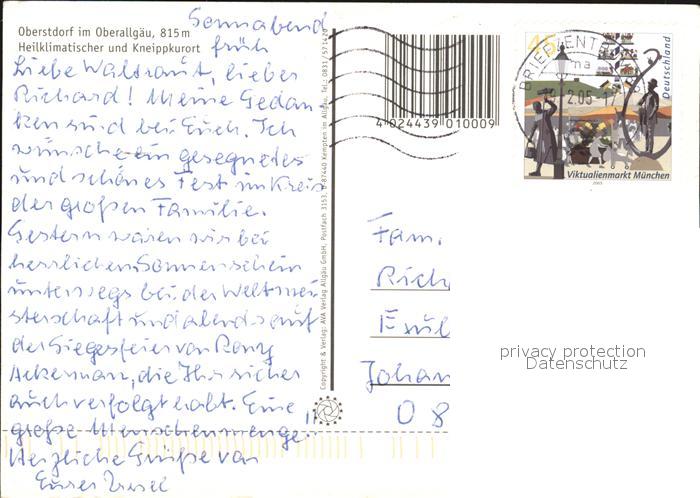 Oberstdorf im Oberallgäu, 815 m
Heilklimatischer und Kneippkurort
Sonnabend
früh
Liebe Waltraut, lieber
Richard! Meine Gedan-
ken sind bei Euch. Ich
wünsche ein gesegnetes
und schönes Fest im Kreis
der großen Familie.
Gestern waren wir bei
herrlichem Sonnenschein
unterwegs bei der Weltmei-
sterschaft und abends auf
der Siegesfeier von Rony
Ackerman, die Ihr sicher
auch verfolgt habt. Eine
große Menschenmenge.
Herzliche Grüße von
Eurer Ursel
Copyright & Verlag: AVA Verlag Allgäu GmbH, Postfach 3153, D-87440 Kempten im Allgäu, Tel. 0831/571420
4 024439 010009
45
Deutschland
Viktualienmarkt München
2005
BRIEFZENTRUM
ma
2.05
Fam.
Rich
Johan
08
privacy protection
Datenschutz